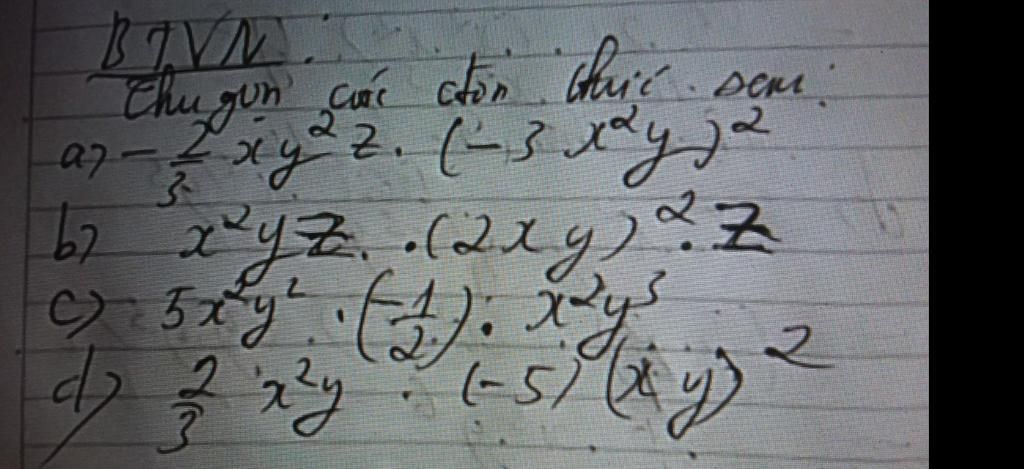 BTVN.
Thu gọn các đơn thức sau:
a) - 2/3 xy²z. (-3x²y)²
b) x²yz. .(2xy)².z
c) 5x²y² .(-1/2). x²y³
d) 2/3 x²y . (-5)(xy)²